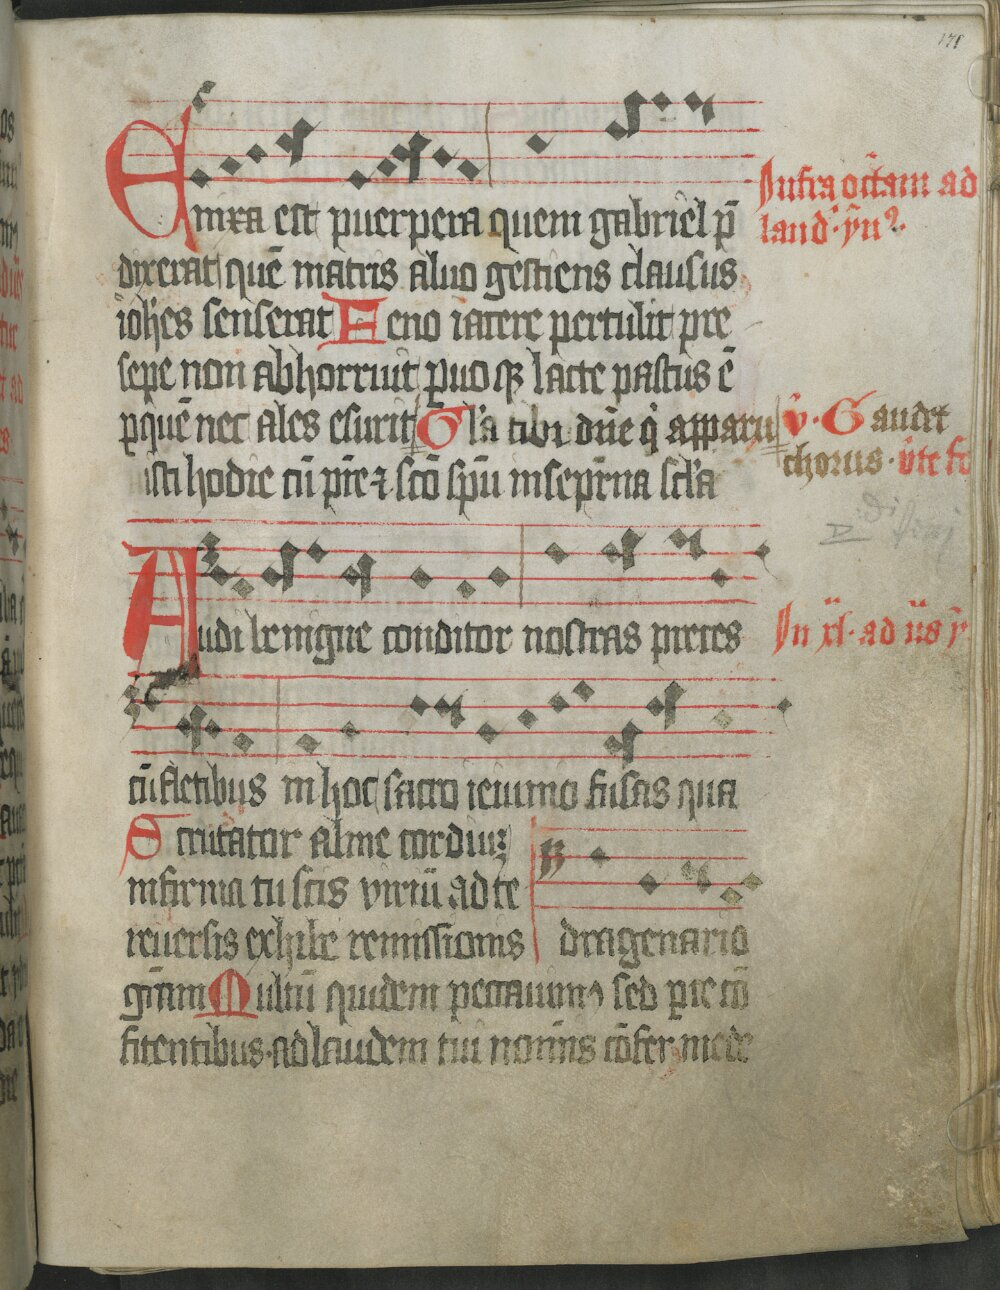 171
Enixa est puerpera quem gabriel p̄
dixerat quē matris aluo gestiens clausus
ioh̄es senserat Feno iacere pertulit pre
sepe non abhorruit ꝑuoqꝫ lacte pastus ē
ꝑquē nec ales esurit Gl'a tibi dn̄e q̇ apparu
isti hodie cū pr̄e ⁊ sc̄o sp̄u in sep̄rna sc̄l'a
Infra octāam ad
laud' yn
v̂ · Gaudet
chorus · v̂te
Audi benigne conditor nostras preces
In xl · ad vs̄ y
cū fletibus in hoc sacro ieiunio fusas qua
dragenario
Scrutator alme cordiuꝫ
infirma tu scis viriū ad te
reuersis exhibe remissionis
gr̄am Multū quidem peccauimꝰ sed ꝑce cō
fitentibus · ad laudem tui nomīs cōfer mede